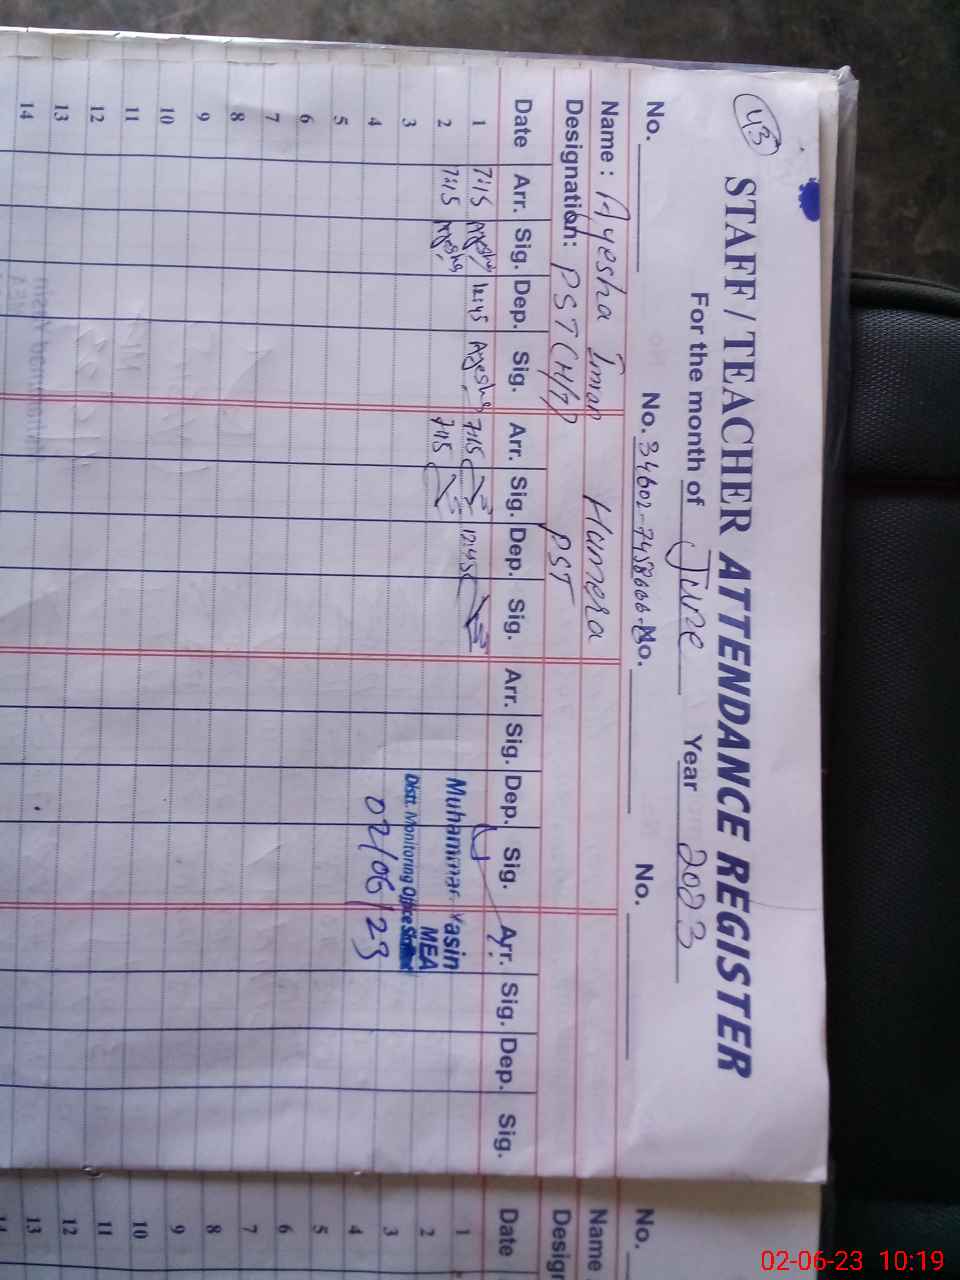 43
STAFF / TEACHER ATTENDANCE REGISTER
For the month of June Year 2023
No. No. 34602-7458666- No. No.
Name : Ayesha Imran Humera
Designation: PST (H/T) PST
Date Arr. Sig. Dep. Sig. Arr. Sig. Dep. Sig. Arr. Sig. Dep. Sig. Arr. Sig. Dep. Sig.
1 7:15 Ayesha 12:45 Ayesha 7:15 12:45
2 7:15 Ayesha 7:15
Muhammad Yasin
MEA
3
Distt. Monitoring Office
4 02/06/23
5
6
7
8
9
10
11
12
13
14
No.
Name
Design
Date
1
2
3
4
5
6
7
8
9
10
11
12
13
14
02-06-23 10:19